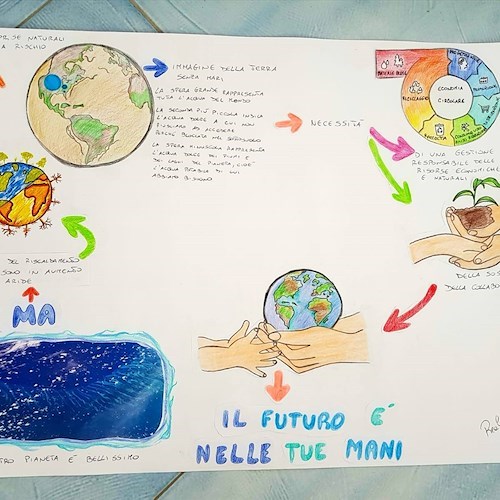 RSE NATURALI
A RISCHIO
IMMAGINE DELLA TERRA
SENZA MARI
LA SFERA GRANDE RAPPRESENTA
TUTTA L'ACQUA DEL MONDO
LA SECONDA PIÙ PICCOLA INDICA
L'ACQUA DOLCE A CUI NON
LA SFERA MINUSCOLA RAPPRESENTA
L'ACQUA DOLCE DEI FIUMI E
DEI LAGHI DEL PIANETA, CIOÈ
L'ACQUA POTABILE DI CUI
ABBIAMO BISOGNO
NECESSITÀ
ECONOMIA
CIRCOLARE
RICICLAGGIO
RACCOLTA
DI UNA GESTIONE
RESPONSABILE DELLE
RISORSE ECONOMICHE
E NATURALI
DEL RISCALDAMENTO
SONO IN AUMENTO
ARIDE
DELLA SOS
DELLA COLLABO
MA
TRO PIANETA È BELLISSIMO
IL FUTURO É
NELLE TUE MANI